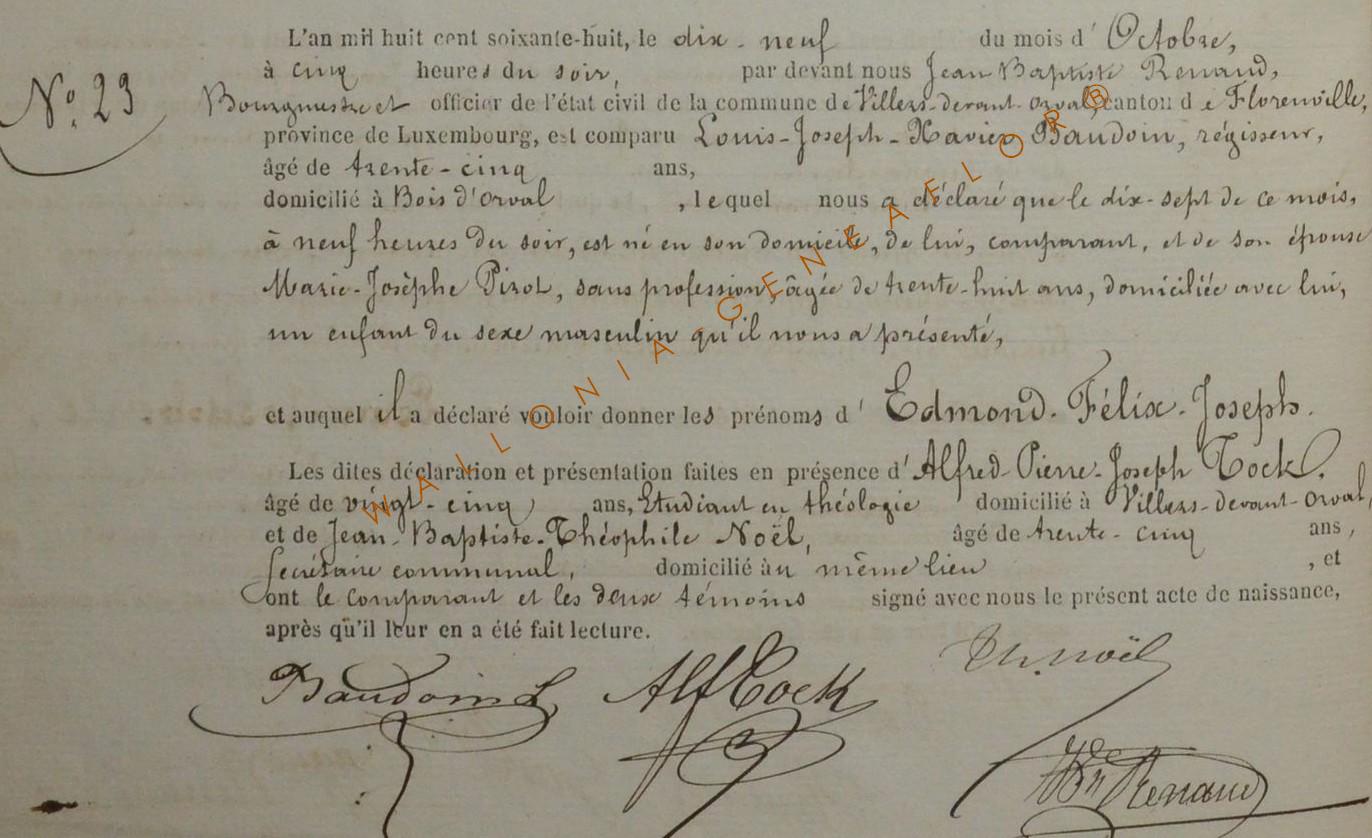 L'an mil huit cent soixante-huit, le dix-neuf du mois d'Octobre,
à cinq heures du soir, par devant nous Jean Baptiste Renaud,
N° 23
Bourgmestre et officier de l'état civil de la commune de Villers-devant-orval, canton de Florenville,
province de Luxembourg, est comparu Louis-Joseph-Xavier Baudoin, régisseur,
âgé de trente-cinq ans,
domicilié à Bois d'orval, lequel nous a déclaré que le dix-sept de ce mois,
à neuf heures du soir, est né en son domicile, de lui, comparant, et de son épouse
Marie-Josèphe Pirot, sans profession, âgée de trente-huit ans, domiciliée avec lui,
un enfant du sexe masculin qu'il nous a présenté,
et auquel il a déclaré vouloir donner les prénoms d'Edmond-Félix-Joseph.
Les dites déclaration et présentation faites en présence d'Alfred-Pierre-Joseph Tock,
âgé de vingt-cinq ans, Etudiant en théologie domicilié à Villers-devant-orval,
et de Jean-Baptiste-Théophile Noël, âgé de trente-cinq ans,
Secrétaire communal, domicilié au même lieu, et
ont le comparant et les deux témoins signé avec nous le présent acte de naissance,
après qu'il leur en a été fait lecture.
Baudoin L. Alf Tock Th. noël
Renaud
WALLONIA-GENEAFLOR®